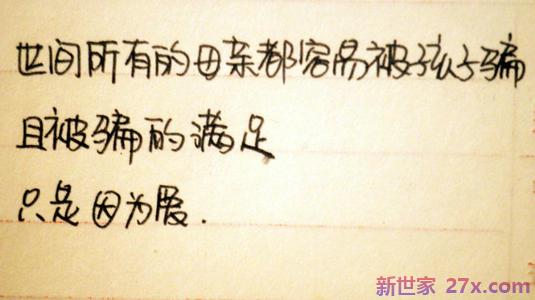 世间所有的母亲都容易被孩子骗
且被骗的满足
只是因为爱.
新世家 27x.com